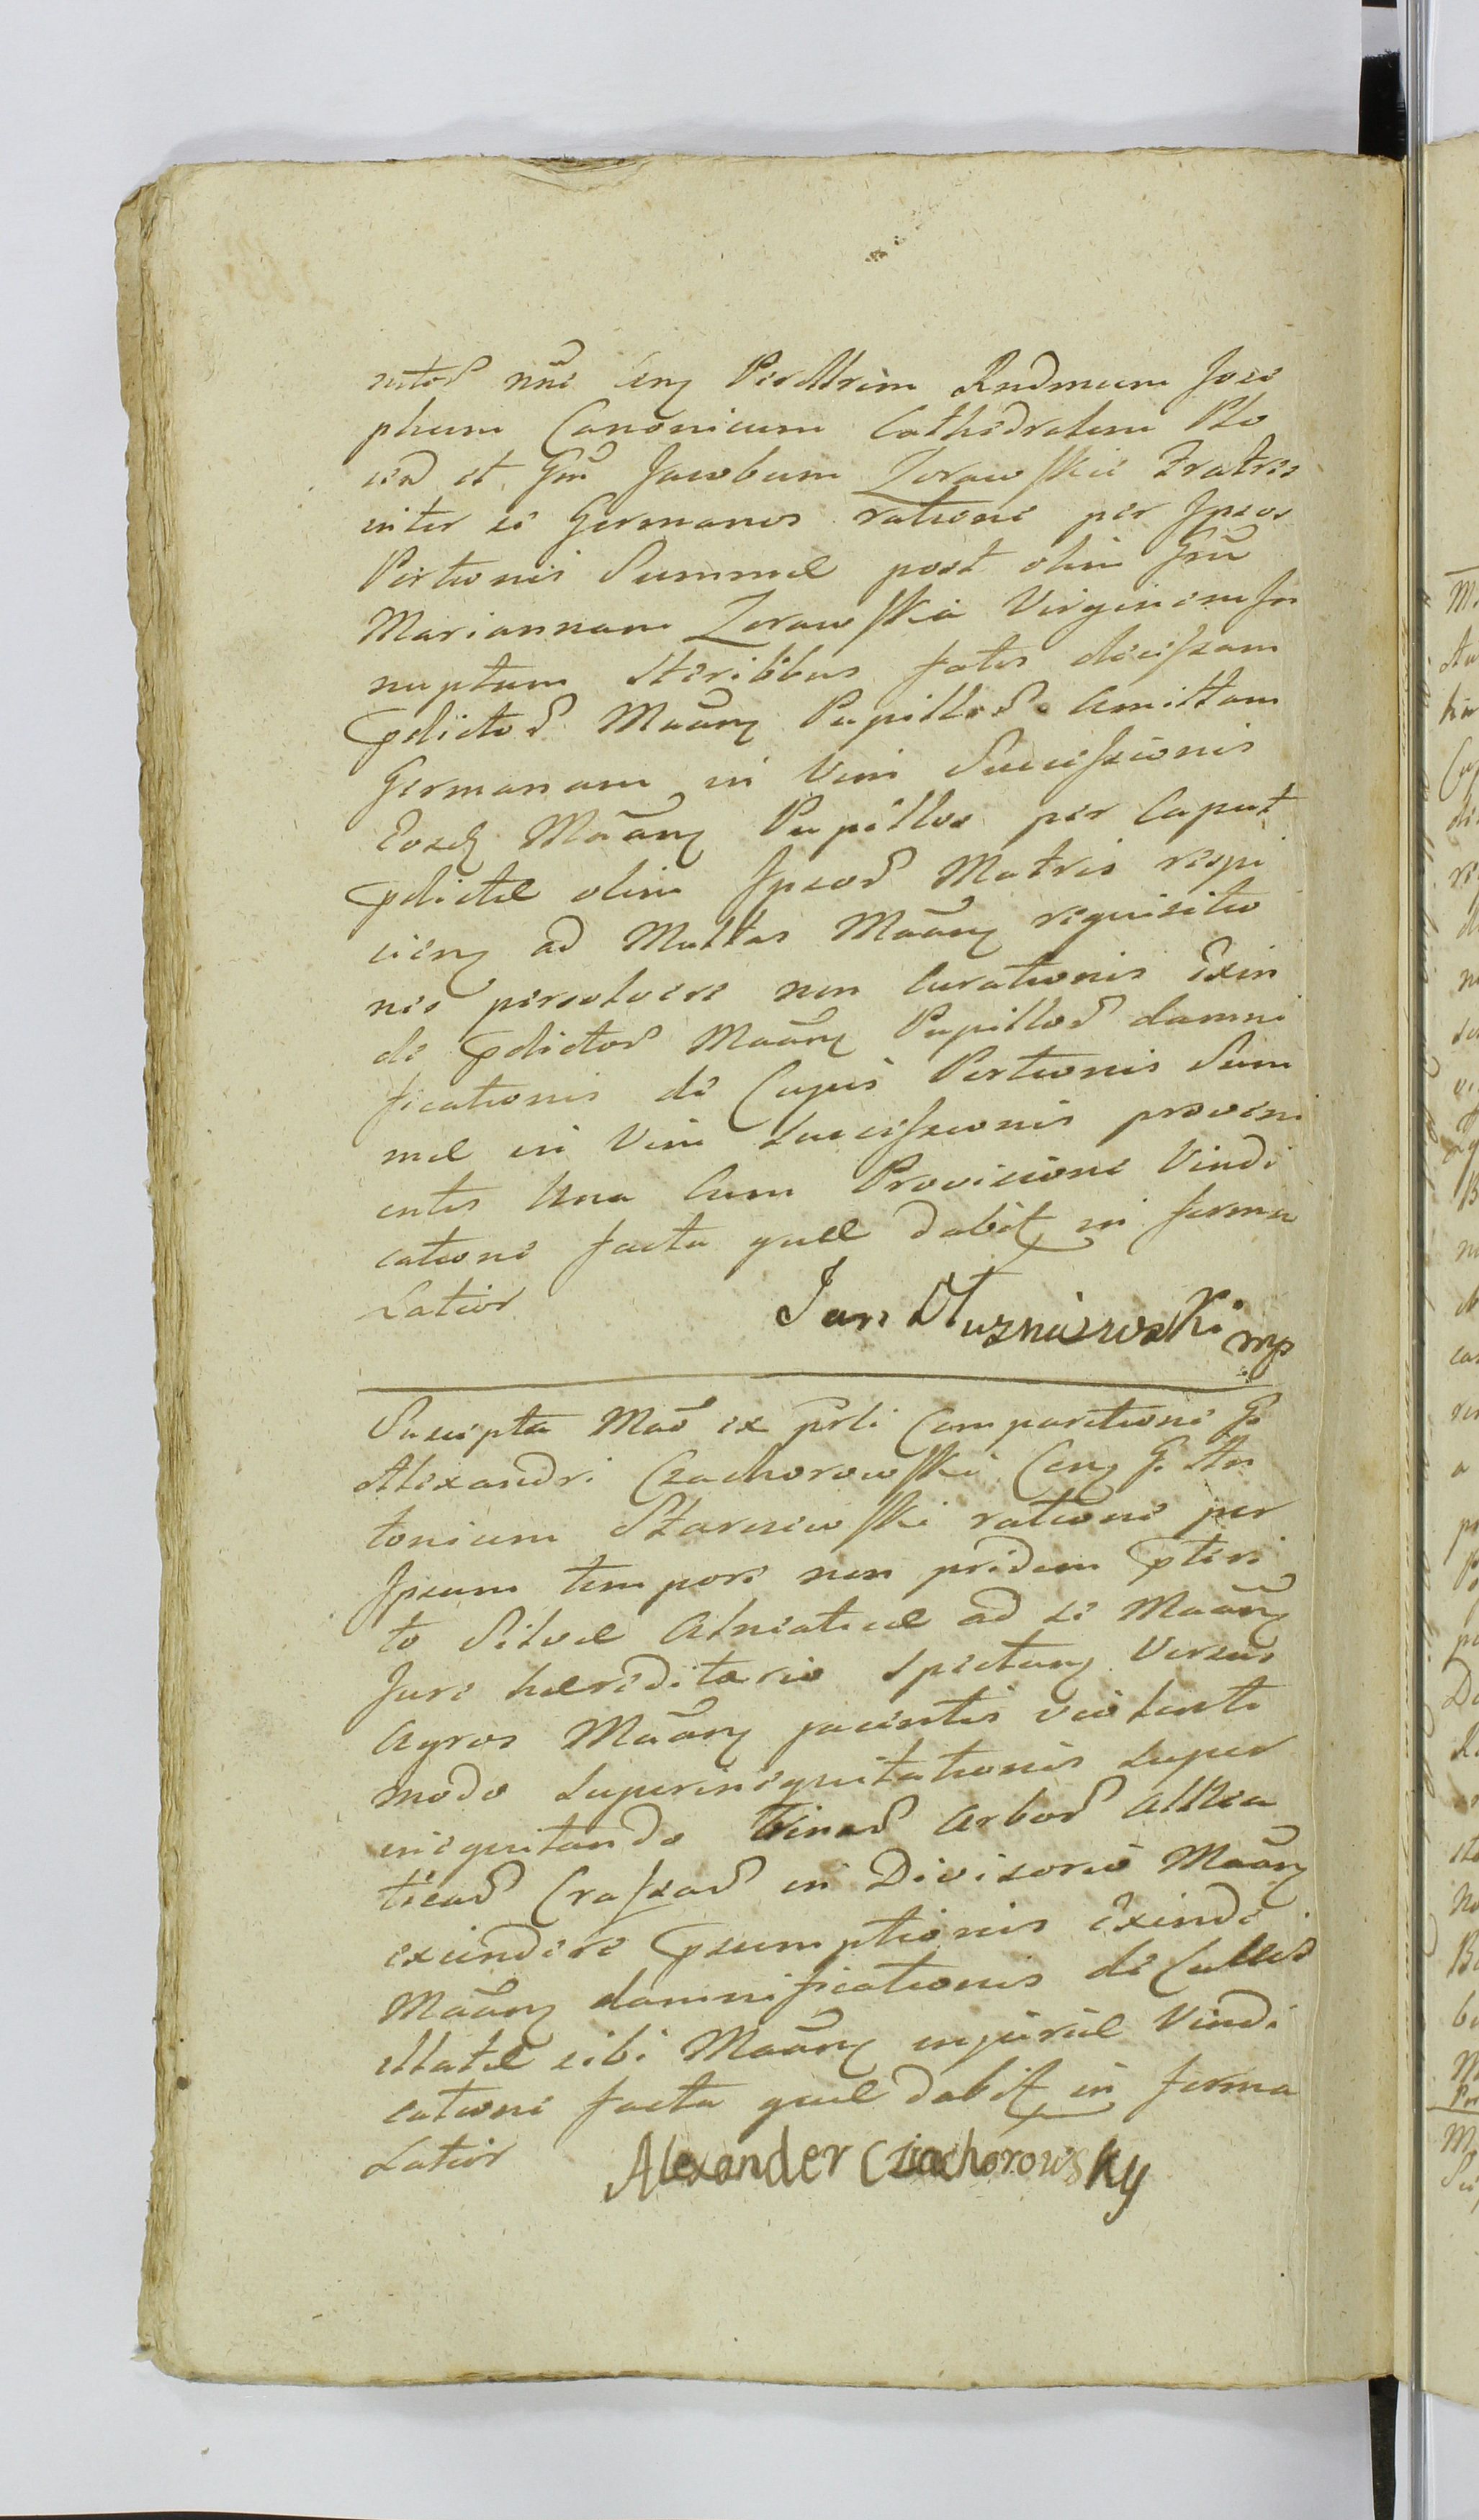 nctor nne Cenz Perlltrim Rndmum Jose
phum Canonicum Cathedralem Plo
cen et Gm Jacobum Zorawskie Fratres
inter se Germanos ratione per Ipsos
Portionis Summæ post olim Gnu
Mariannam Zorawska Virginem In
nuptam sterilibus fatis decessam
pdictor Maanz Pupillor Amittam
Germanam in Vim Successionis
Eosdz Maanz Pupillos per Caput
pdictæ olim Ipsor Matris respi
cienz ad Multas Maanz requisitio
nes persolvere non Curationis Exin
de pdictor Maanz Pupillor damni
ficationis de Cujus Portionis Sum
mæ in Vim Successionis proveni
entis Una Cum Provisione Vindi
catione facta quæ dabit in forma
Latior
Jan Dłuzniewski mp
Suscepta Mae ex psli Comparitione G.
Alexandri Czachorowski Cenz G. An
tonium Starczewski ratione per
Ipsum tempore non pridem pteri
to Silvæ Alneticæ ad se Maanz
Jure hæreditario spectanz Versus
Agros Maanz jacentis violente
modo Superinequitationis super
inequitando Binas Arbor Alnea
ticas Crassas in Divisorio Maanz
excindere psumptionis Exinde
Maanz damnificationis de Cujus
illatæ sibi Maanz injuriæ Vindi
catione facta quæ dabit in forma
Latior
Alexander Cziachorowsky